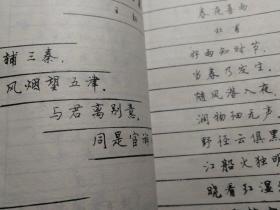 辅三秦，
风烟望五津。
与君离别意，
同是宦
春夜喜雨
杜甫
好雨知时节，
当春乃发生。
随风潜入夜，
润物细无声。
野径云俱黑
江船火独明
晓看红湿